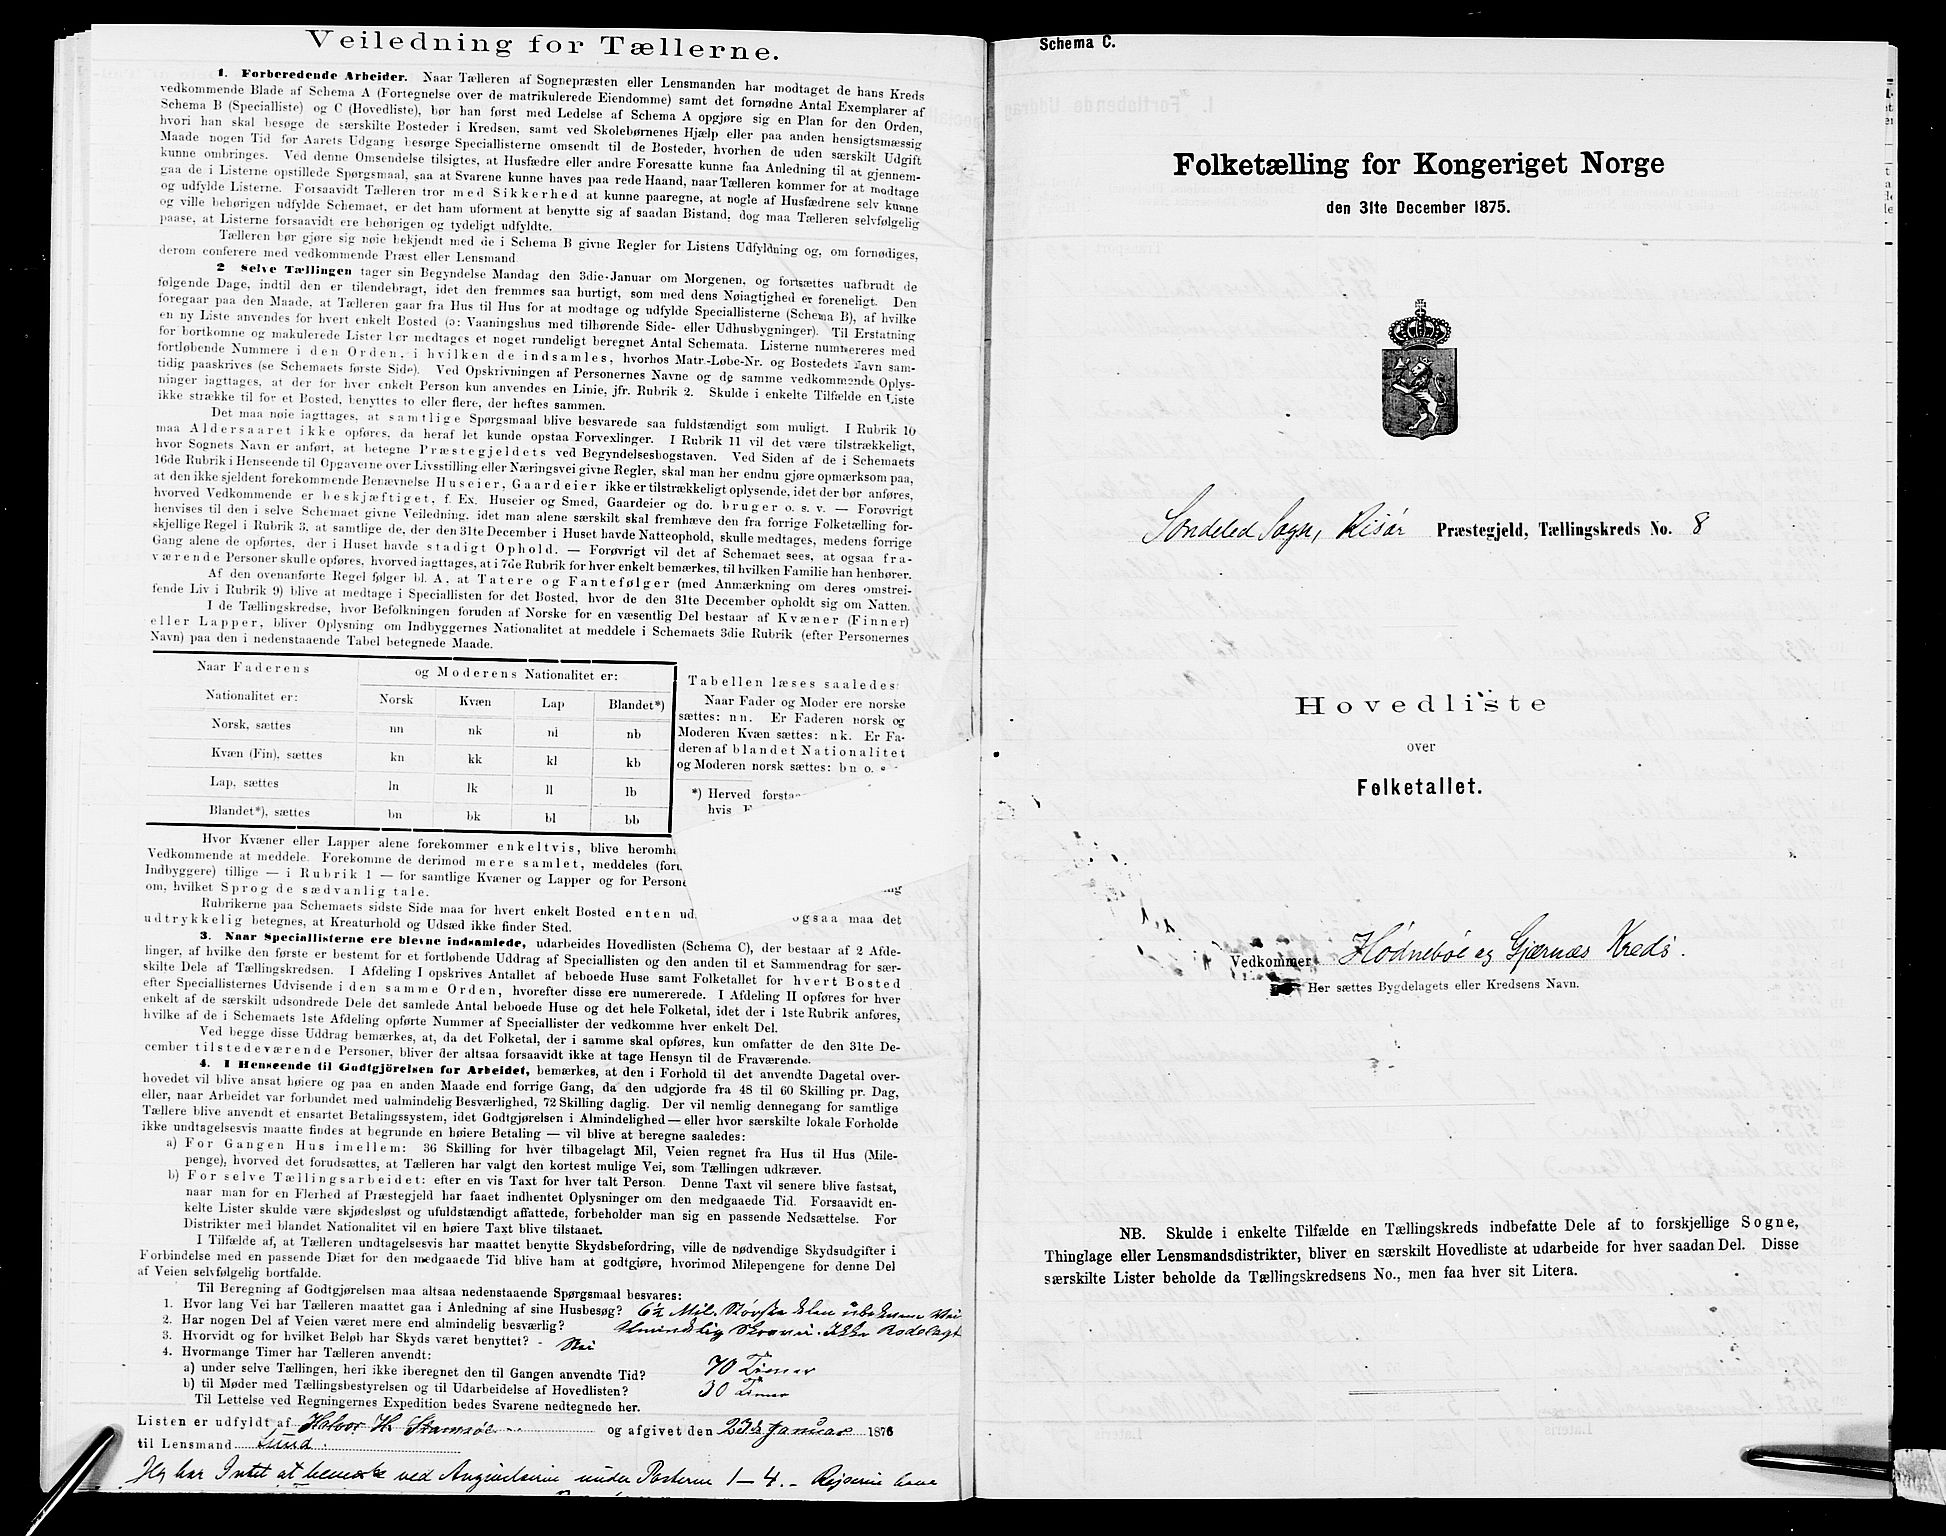 Veiledning for Tællerne.
1. Forberedende Arbeider. Naar Tælleren af Sognepræsten eller Lensmanden har modtaget de hans Kreds
vedkommende Blade af Schema A (Fortegnelse over de matrikulerede Eiendomme) samt det fornødne Antal Exemplarer af
Schema B (Specialliste) og C (Hovedliste), bør han først med Ledelse af Schema A opgjøre sig en Plan for den Orden,
hvori han skal besøge de særskilte Bosteder i Kredsen, samt ved Skolebørnenes Hjælp eller paa anden hensigtsmæssig
Maade nogen Tid før Aarets Udgang besørge Speciallisterne omsendt til de Bosteder, hvorhen de uden særskilt Udgift
kunne ombringes. Ved denne Omsendelse tilsigtes, at Husfædre eller andre Foresatte kunne faa Anledning til at gjennem-
gaa de i Listerne opstillede Spørgsmaal, saa at Svarene kunne haves paa rede Haand, naar Tælleren kommer for at modtage
og udfylde Listerne. Forsaavidt Tælleren tror med Sikkerhed at kunne paaregne, at nogle af Husfædrene selv kunne
og ville behørigen udfylde Schemaet, er det ham uforment at benytte sig af saadan Bistand, dog maa Tælleren selvfølgelig
paase, at Listerne forsaavidt ere behørigen og tydeligt udfyldte.
Tælleren bør gjøre sig nøie bekjendt med de i Schema B givne Regler for Listens Udfyldning og, om fornødiges,
derom conferere med vedkommende Præst eller Lensmand
2 Selve Tællingen tager sin Begyndelse Mandag den 3die Januar om Morgenen, og fortsættes uafbrudt de
følgende Dage, indtil den er tilendebragt, idet den fremmes saa hurtigt, som med dens Nøiagtighed er foreneligt. Den
foregaar paa den Maade, at Tælleren gaar fra Hus til Hus for at modtage og udfylde Speciallisterne (Schema B), af hvilke
en ny Liste anvendes for hvert enkelt Bosted (ɔ: Vaaningshus med tilhørende Side- eller Udhusbygninger). Til Erstatning
for bortkomne og makulerede Lister bør medtages et noget rundeligt beregnet Antal Schemata. Listerne nummereres med
fortløbende Nummere i den Orden, i hvilken de indsamles, hvorhos Matr.-Løbe-Nr. og Bostedets Navn sam-
tidig paaskrives (se Schemaets første Side). Ved Opskrivningen af Personernes Navne og de samme vedkommende Oplys-
ninger iagttages, at der for hver enkelt Person kun anvendes en Linie, jfr. Rubrik 2. Skulde i enkelte Tilfælde en Liste
ikke strække til for et Bosted, benyttes to eller flere, der heftes sammen.
Det maa nøie iagttages, at samtlige Spørgsmaal blive besvarede saa fuldstændigt som muligt. I Rubrik 10
maa Aldersaaret ikke opføres, da heraf let kunde opstaa Forvexlinger. I Rubrik 11 vil det være tilstrækkeligt,
hvor Sognets Navn er anført, at betegne Præstegjeldets ved Begyndelsesbogstaven. Ved Siden af de i Schemaets
16de Rubrik i Henseende til Opgaverne over Livsstilling eller Næringsvei givne Regler, skal man her endnu gjøre opmærksom paa,
at den ikke sjeldent forekommende Benævnelse Huseier, Gaardeier ikke er tilstrækkeligt oplysende, idet der bør anføres,
hvorved Vedkommende er beskjæftiget, f. Ex. Huseier og Smed, Gaardeier og do. bruger o. s. v. — Forøvrigt
henvises til den i selve Schemaet givne Veiledning, idet man alene særskilt skal fremhæve den fra forrige Folketælling for-
skjellige Regel i Rubrik 3, at samtlige de, der den 31te December i Huset havde Natteophold, skulle medtages, medens forrige
Gang alene de opførtes, der i Huset havde stadigt Ophold. — Forøvrigt vil det af Schemaet sees, at ogsaa fra-
værende Personer skulle opføres, hvorved iagttages, at i 7de Rubrik for hver enkelt bemærkes, til hvilken Familie han henhører.
Af den ovenanførte Regel følger bl. A, at Tatere og Fantefølger (med Anmærkning om deres omstrei-
fende Liv i Rubrik 9) blive at medtage i Speciallisten for det Bosted, hvor de den 31te December opholdt sig om Natten.
I de Tællingskredse, hvor Befolkningen foruden af Norske for en væsentlig Del bestaar af Kvæner (Finner)
eller Lapper, bliver Oplysning om Indbyggernes Nationalitet at meddele i Schemaets 3die Rubrik (efter Personernes
Navn) paa den i nedenstaaende Tabel betegnede Maade.
Naar Faderens og Moderens Nationalitet er:
Nationalitet er: Norsk Kvæn Lap Blandet*)
Norsk, sættes nn nk nl nb
Kvæn (Fin), sættes kn kk kl kb
Lap, sættes ln lk ll lb
Blandet*), sættes bn bk bl bb
Tabellen læses saaledes:
Naar Fader og Moder ere norske
sættes: nn. Er Faderen norsk og
Moderen Kvæn sættes: nk. Er Fa-
deren af blandet Nationalitet
og Moderen norsk sættes: bn o.
*) Herved forstaa
hvis
Hvor Kvæner eller Lapper alene forekommer enkeltvis, blive heromh
Vedkommende at meddele. Forekomme de derimod mere samlet, meddeles (foru
Indbyggere) tillige — i Rubrik 1 — for samtlige Kvæner og Lapper og for Persone
om, hvilket Sprog de sædvanlig tale.
Rubrikerne paa Schemaets sidste Side maa for hvert enkelt Bosted enten ud ogsaa maa det
udtrykkelig betegnes, at Kreaturhold og Udsæd ikke finder Sted.
3. Naar Speciallisterne ere blevne indsamlede, udarbeides Hovedlisten (Schema C), der bestaar af 2 Afde-
linger, af hvilke den første er bestemt for et fortløbende Uddrag af Speciallisten og den anden til et Sammendrag for sær-
skilte Dele af Tællingskredsen. I Afdeling I opskrives Antallet af beboede Huse samt Folketallet for hvert Bosted
efter Speciallisternes Udvisende i den samme Orden, hvorefter disse ere numererede. I Afdeling II opføres for hver
enkelt af de særskilt udsondrede Dele det samlede Antal beboede Huse og det hele Folketal, idet der i 1ste Rubrik anføres,
hvilke af de i Schemaets 1ste Afdeling opførte Nummer af Speciallister der vedkomme hver enkelt Del.
Ved begge disse Uddrag bemærkes, at, da det Folketal, der i samme skal opføres, kun omfatter de den 31te De-
cember tilstedeværende Personer, bliver der altsaa forsaavidt ikke at tage Hensyn til de Fraværende.
4. I Henseende til Godtgjörelsen for Arbeidet, bemærkes, at den i Forhold til det anvendte Dagetal over-
hovedet vil blive ansat høiere og paa en anden Maade end forrige Gang, da den udgjorde fra 48 til 60 Skilling pr. Dag,
eller, naar Arbeidet var forbundet med ualmindelig Besværlighed, 72 Skilling daglig. Der vil nemlig dennegang for samtlige
Tællere blive anvendt et ensartet Betalingssystem, idet Godtgjørelsen i Almindelighed — eller hvor særskilte lokale Forholde
ikke undtagelsesvis maatte findes at begrunde en høiere Betaling — vil blive at beregne saaledes:
a) For Gangen Hus imellem: 36 Skilling for hver tilbagelagt Mil, Veien regnet fra Hus til Hus (Mile-
penge), hvorved det forudsættes, at Tælleren har valgt den kortest mulige Vei, som Tællingen udkræver.
b) For selve Tællingsarbeidet: efter en vis Taxt for hver talt Person. Denne Taxt vil senere blive fastsat,
naar man for en Flerhed af Præstegjeld har faaet indhentet Oplysninger om den medgaaede Tid. Forsaavidt en-
kelte Lister skulde være skjødesløst og ufuldstændigt affattede, forbeholder man sig en passende Nedsættelse. For
Distrikter med blandet Nationalitet vil en høiere Taxt blive tilstaaet.
I Tilfælde af, at Tælleren undtagelsesvis har maattet benytte Skydsbefordring, ville de nødvendige Skydsudgifter i
Forbindelse med en passende Diæt for den medgaaede Tid blive ham at godtgjøre, hvorimod Milepengene for denne Del
af Veien selvfølgelig bortfalde.
Til Beregning af Godtgjørelsen maa altsaa nedenstaaende Spørgsmaal besvares:
1. Hvor lang Vei har Tælleren maattet gaa i Anledning af sine Husbesøg? 6½ Mil. Største Delen ubekvem Vei
2. Har nogen Del af Veien været mere end almindelig besværlig? Almindelig Skovvei. Ikke Rodelagt
3. Hvorvidt og for hvilket Beløb har Skyds været benyttet? - Nei
4. Hvormange Timer har Tælleren anvendt:
a) under selve Tællingen, heri ikke iberegnet den til Gangen anvendte Tid? 70 Timer
b) til Møder med Tællingsbestyrelsen og til Udarbeidelse af Hovedlisten? 30 Timer
Til Lettelse ved Regningernes Expedition bedes Svarene nedtegnede her.
Listen er udfyldt af Halvor H. Stamsöe og afgivet den 23de Januar 1876
til Lensmand Lund.
Jeg har Intet at bemerke ved Angivelserne under Posterne 1–4. – Rejserne have
Schema C.
Folketælling for Kongeriget Norge
den 31te December 1875.
Söndeled Sogn, Risör Præstegjeld, Tællingskreds No. 8
Hovedliste
over
Folketallet.
Vedkommer Hödnebøe og Gjærnæs Kreds.
Her sættes Bygdelagets eller Kredsens Navn.
NB. Skulde i enkelte Tilfælde en Tællingskreds indbefatte Dele af to forskjellige Sogne,
Thinglage eller Lensmandsdistrikter, bliver en særskilt Hovedliste at udarbeide for hver saadan Del. Disse
særskilte Lister beholde da Tællingskredsens No., men faa hver sit Litera.